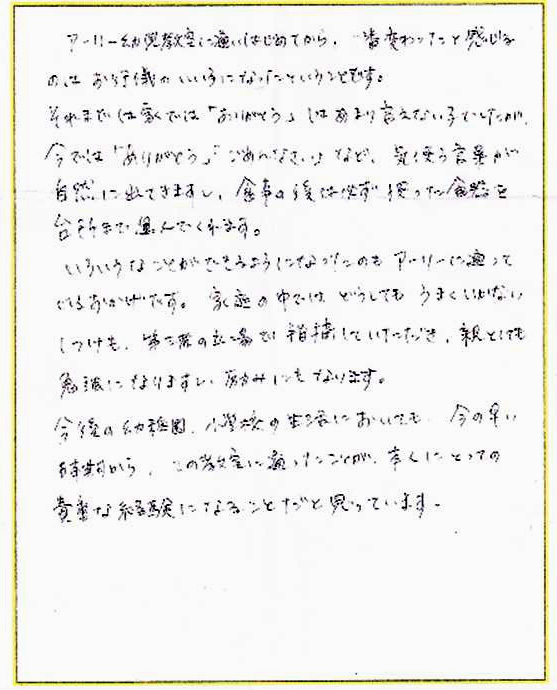 アーリー幼児教室に通いはじめてから、一番変わったと感じる
のはお行儀がいい子になったということです。
それまでは家では「ありがとう」はあまり言えない子でしたが、
今では「ありがとう」「ごめんなさい」など、気使う言葉が
自然に出てきますし、食事の後は必ず使った食器を
台所まで運んでくれます。
いろいろなことができるようになったのもアーリーに通って
いるおかげです。家庭の中ではどうしてもうまくいかない
しつけも、第三者の立場で指摘していただき、親としても
勉強になりますし、励みにもなります。
今後の幼稚園、小学校の生活においても、今の早い
時期から、この教室に通ったことが、にとっての
貴重な経験になることだと思っています。